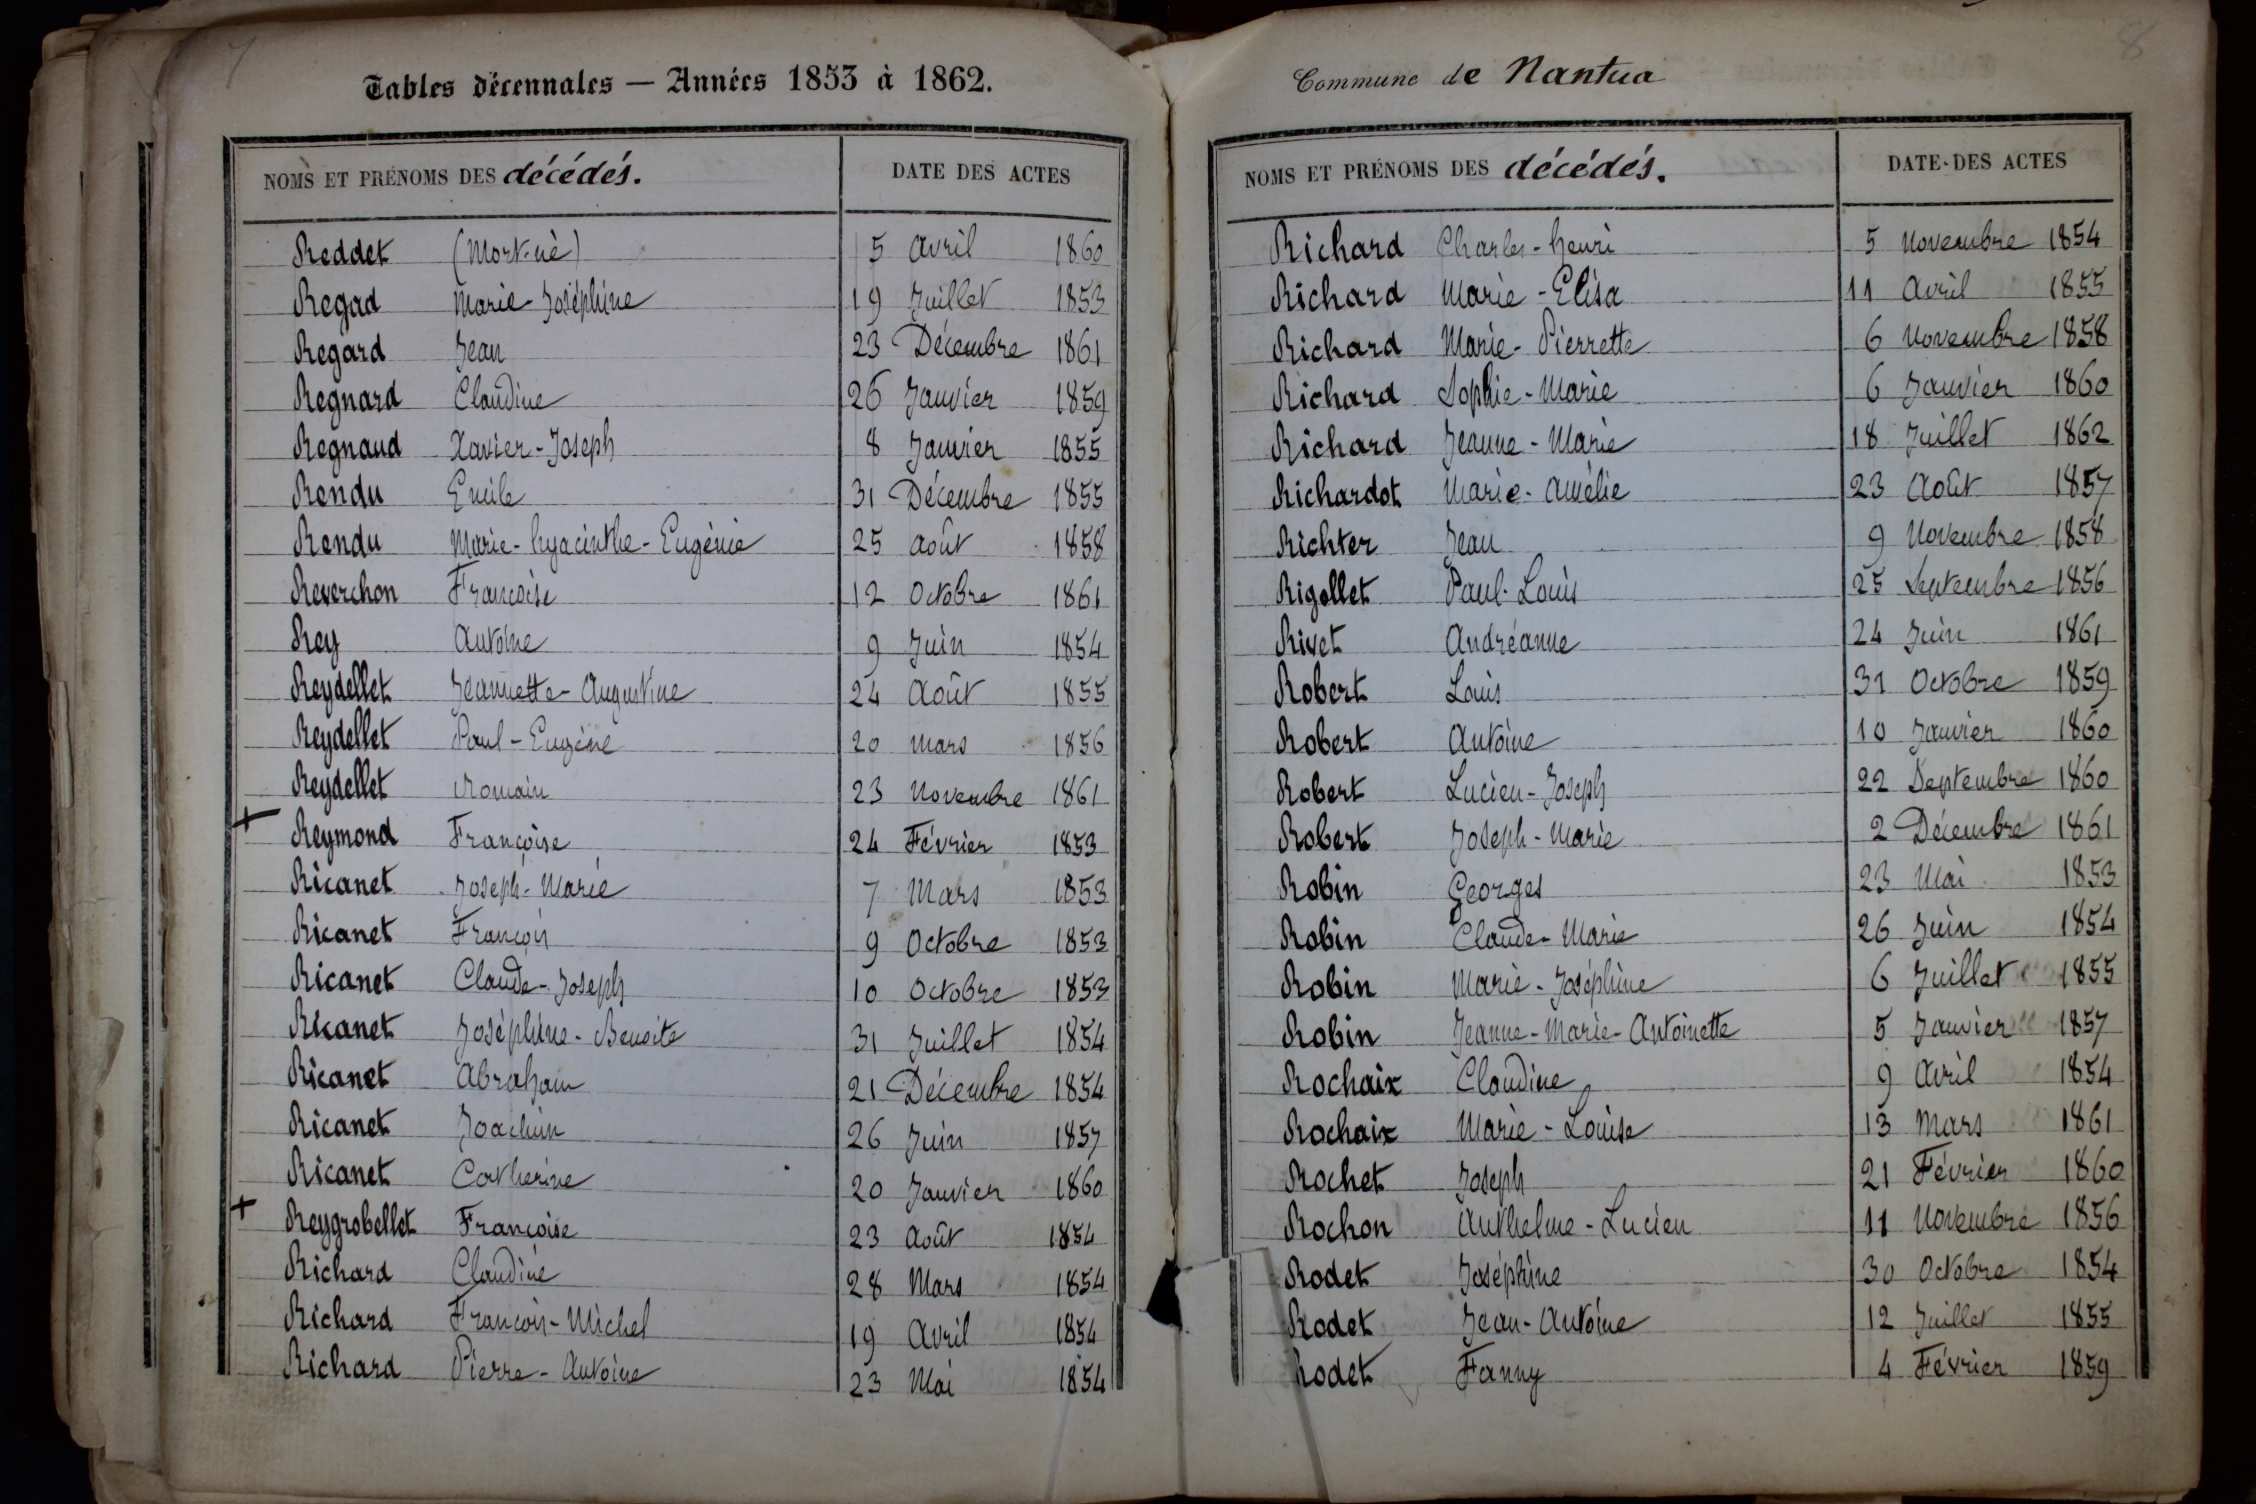 7
Tables décennales — Années 1853 à 1862.
NOMS ET PRÉNOMS DES décédés. DATE DES ACTES
Reddet (Mort-né) 5 Avril 1860
Regad Marie-Joséphine 19 Juillet 1853
Regard Jean 23 Décembre 1861
Regnard Claudine 26 Janvier 1859
Regnaud Xavier-Joseph 8 Janvier 1855
Rendu Emile 31 Décembre 1855
Rendu Marie-hyacinthe-Eugénie 25 Août 1858
Reverchon Françoise 12 Octobre 1861
Rey Antoine 9 Juin 1854
Reydellet Jeannette-Augustine 24 Août 1855
Reydellet Paul-Eugène 20 Mars 1856
Reydellet Romain 23 Novembre 1861
+ Reymond Françoise 24 Février 1853
Ricanet Joseph-Marie 7 Mars 1853
Ricanet François 9 Octobre 1853
Ricanet Claude-Joseph 10 Octobre 1853
Ricanet Joséphine-Benoite 31 Juillet 1854
Ricanet Abraham 21 Décembre 1854
Ricanet Joachim 26 Juin 1857
Ricanet Catherine 20 Janvier 1860
+ Reygrobellet Françoise 23 Août 1854
Richard Claudine 28 Mars 1854
Richard François-Michel 19 Avril 1854
Richard Pierre-Antoine 23 Mai 1854
8
Commune de Nantua
NOMS ET PRÉNOMS DES décédés. DATE DES ACTES
Richard Charles-henri 5 Novembre 1854
Richard Marie-Elisa 11 Avril 1855
Richard Marie-Pierrette 6 Novembre 1858
Richard Sophie-Marie 6 Janvier 1860
Richard Jeanne-Marie 18 Juillet 1862
Richardot Marie-Amélie 23 Août 1857
Richter Jean 9 Novembre 1858
Rigollet Paul-Louis 25 Septembre 1856
Rivet Andréanne 24 Juin 1861
Robert Louis 31 Octobre 1859
Robert Antoine 10 Janvier 1860
Robert Lucien-Joseph 22 Septembre 1860
Robert Joseph-Marie 2 Décembre 1861
Robin Georges 23 Mai 1853
Robin Claude-Marie 26 Juin 1854
Robin Marie-Joséphine 6 Juillet 1855
Robin Jeanne-Marie-Antoinette 5 Janvier 1857
Rochaix Claudine 9 Avril 1854
Rochaix Marie-Louise 13 Mars 1861
Rochet Joseph 21 Février 1860
Rochon Anthelme-Lucien 11 Novembre 1856
Rodet Joséphine 30 Octobre 1854
Rodet Jean-Antoine 12 Juillet 1855
Rodet Fanny 4 Février 1859